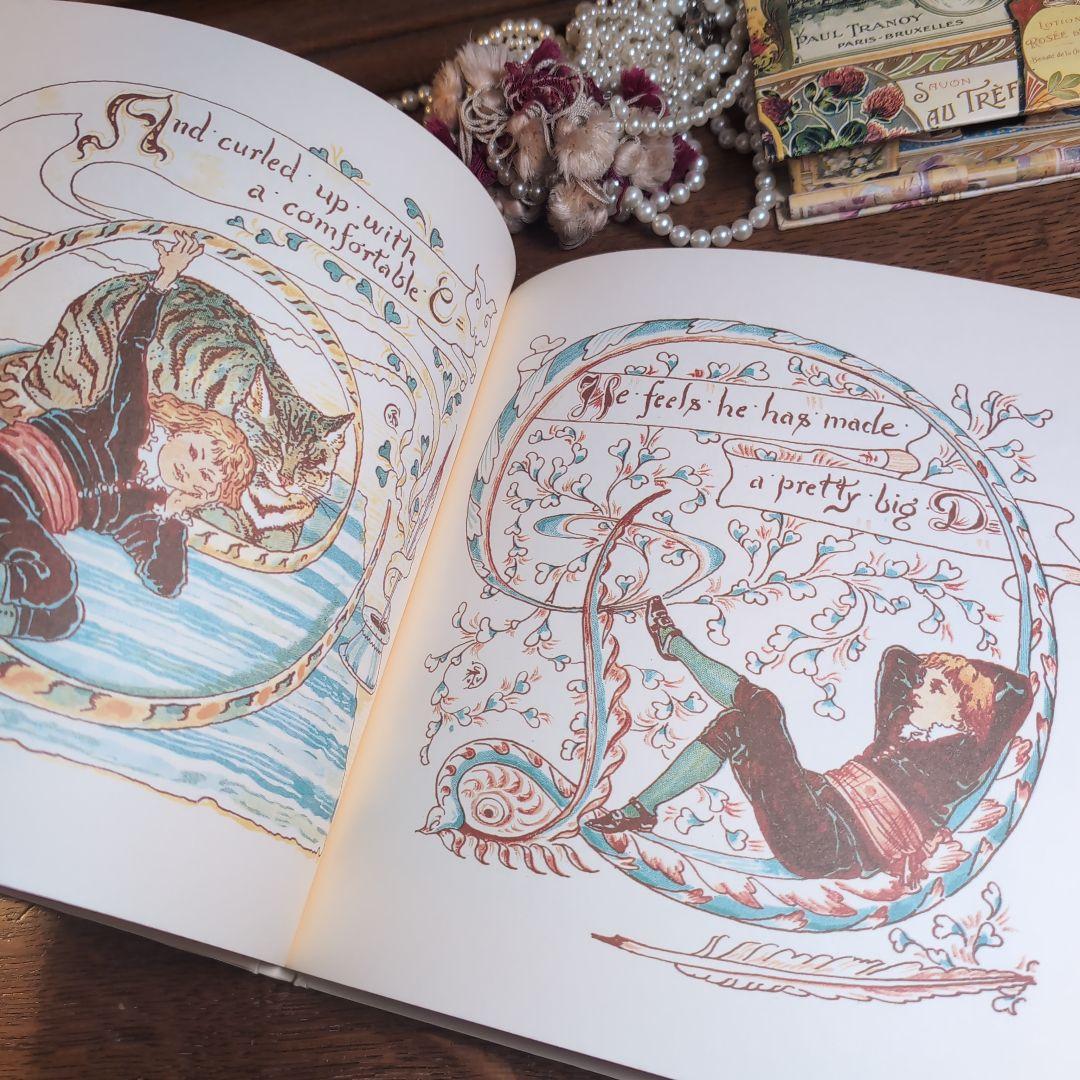 And · curled · up · with
a · comfortable · C =
He · feels · he · has · made ·
a · pretty · big · D =
PAUL TRANOY
PARIS - BRUXELLES
SAVON
AU TRÈF
LOTION